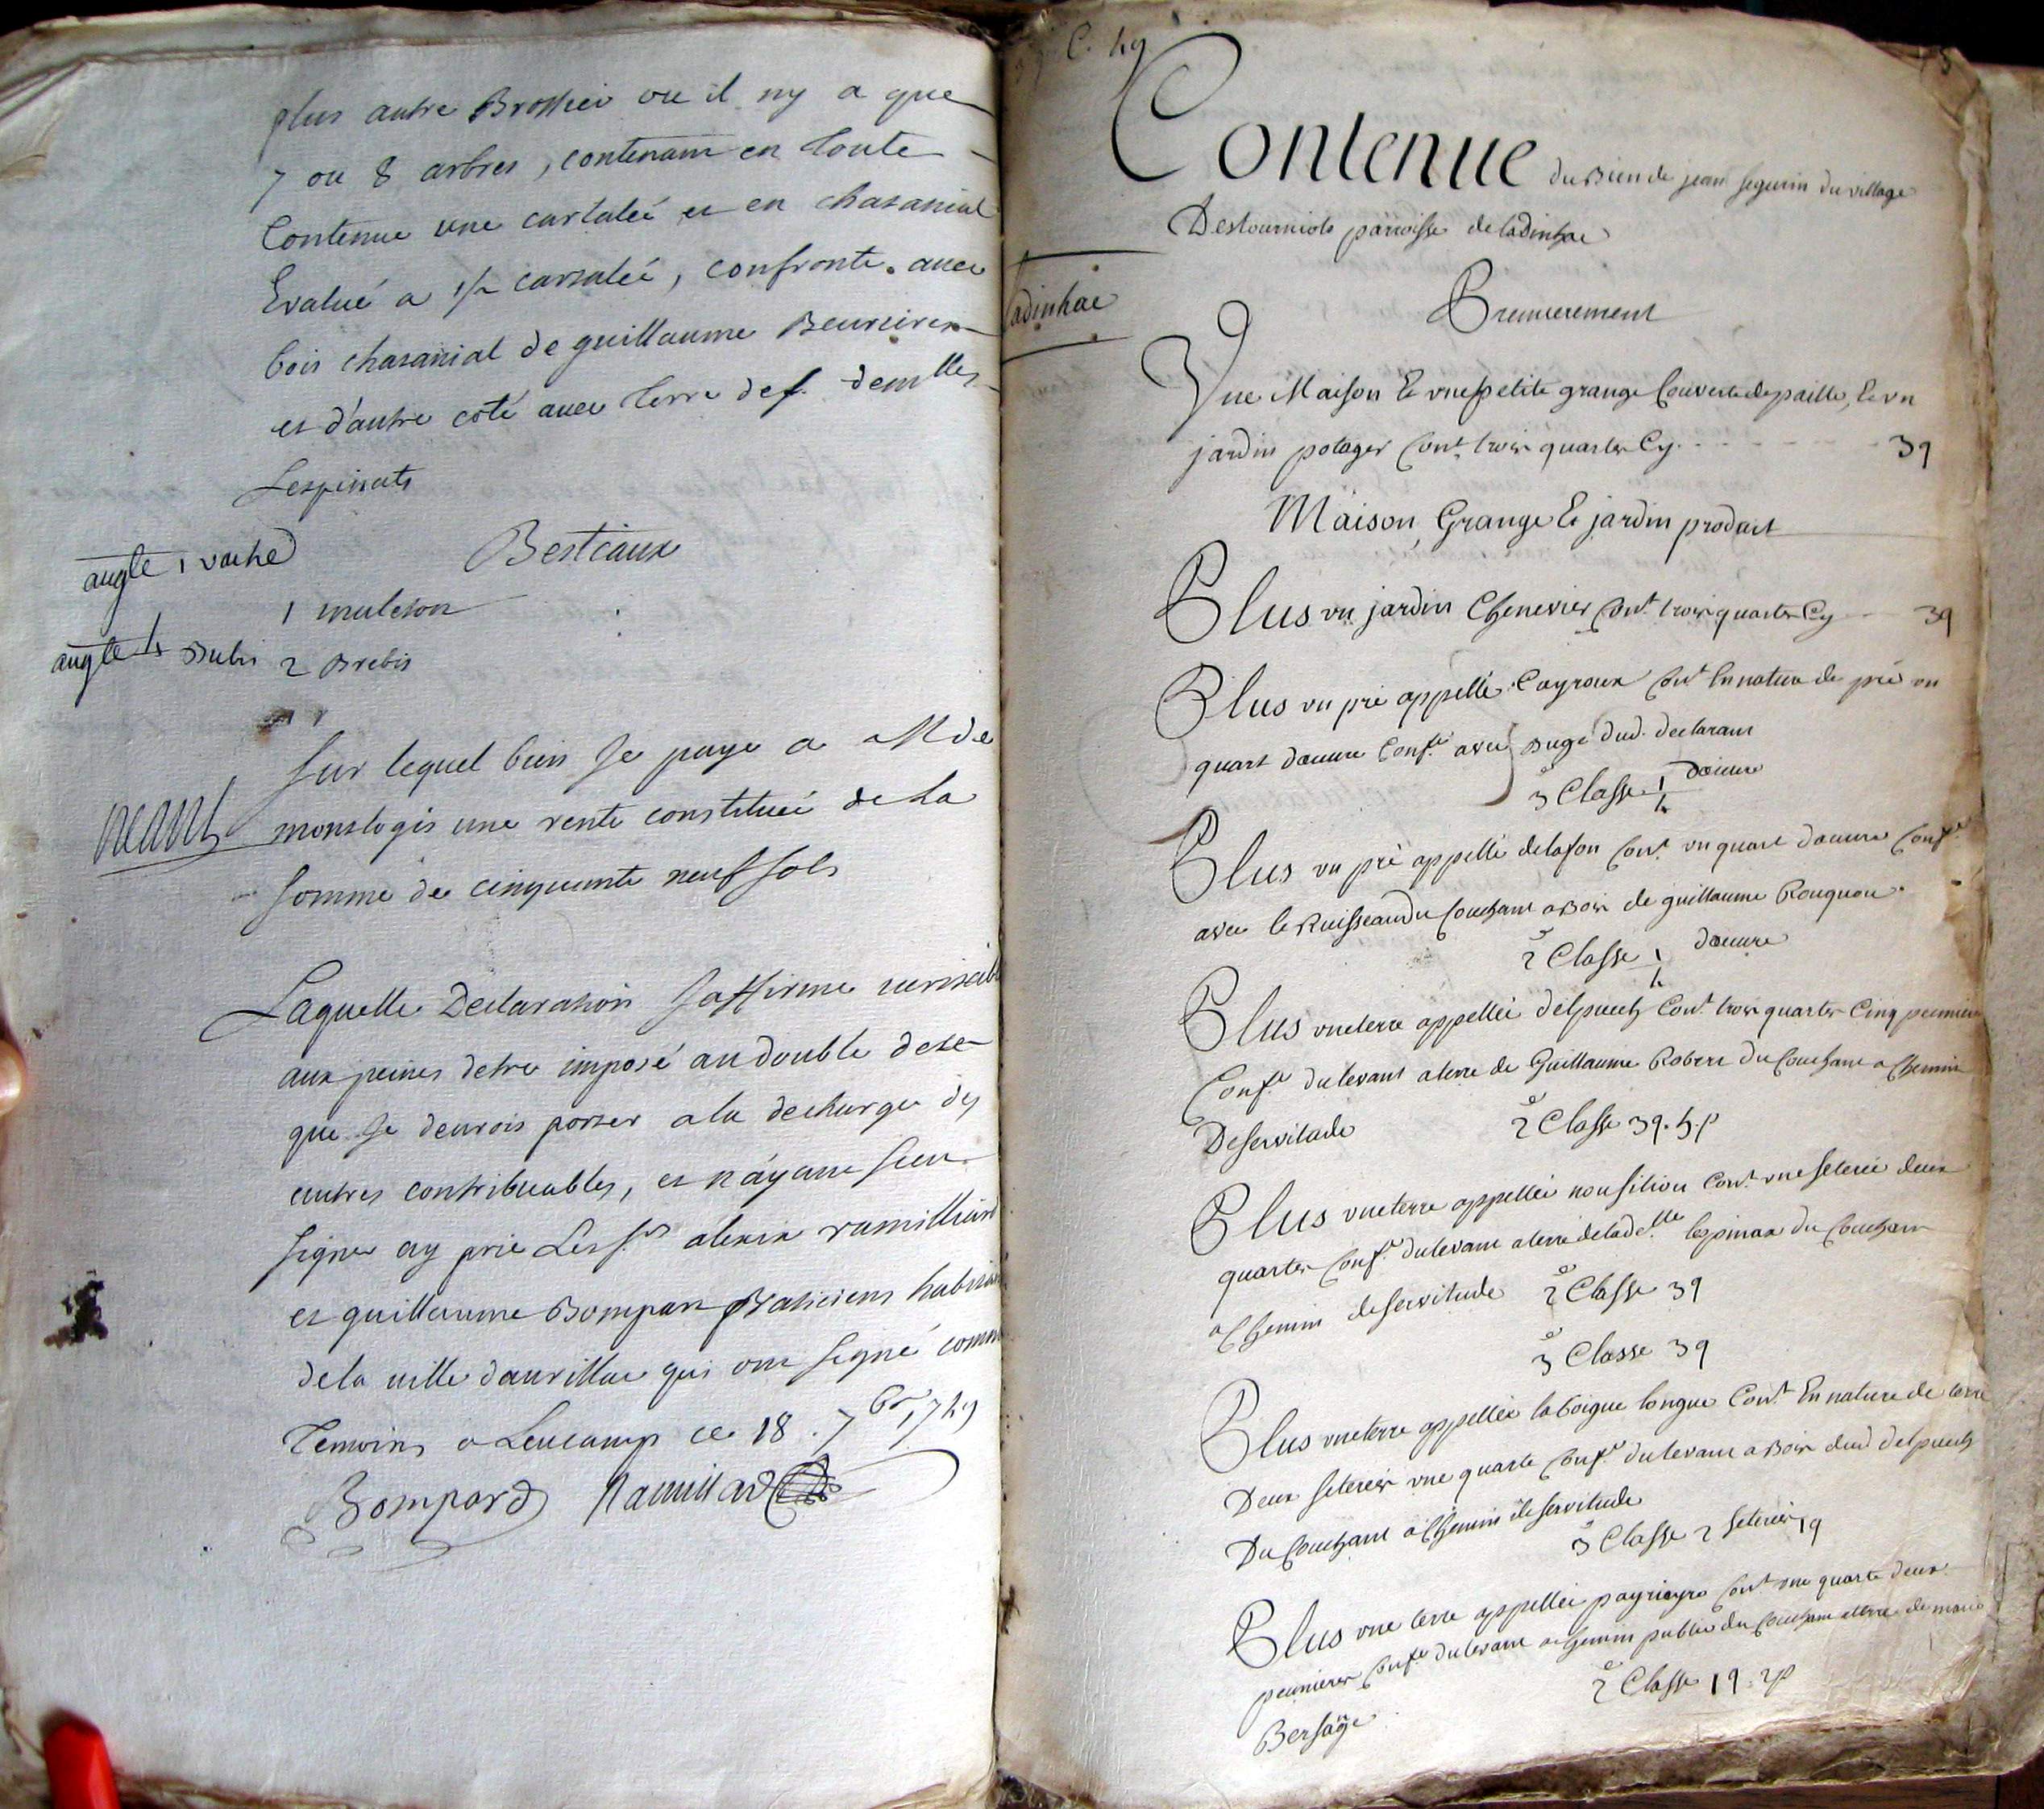 plus autre Brossier ou il ny a que
7 ou 8 arbres, contenam en toute
Contenue une cartaleé et en chasanial
Evalué a 1/2 cartaleé, confronte. avec
bois chasanial de guillaume
et d'autre coté avec terre de demlles
Lespinats
Bestiaux
angle 1 vache
1 muleton
angle 2 Brebis
Sur lequel bien Je paye a Mde
neant
monslogis une rente constitueé de la
somme de cinquante neuf sols
Laquelle Declaration Jaffirme
aux peines detre imposé au double de ce
que Je devrois porter a la decharge des
autres contribuables, et n'ayant sceu
signer ay prie Les srs alexis ramilliard
et guillaume Bompar Praticiens
de la ville d'aurillac qui ont signé comme
Temoins a Leucamp ce 18. 7br 1749
Bompard Ramillard
C. 49
Contenue du Bien de jean seguin du village
Destourniols parroisse de ladinhac
ladinhac
Premierement
Une Maison Et une petite grange Couverte de paille, Et un
jardin potager Cont trois quarter Cy 3q
Maison, Grange Et jardin produit
Plus un jardin Chenevier Cont trois quarter Cy 3q
Plus un pré appellé Cayroux Cont En nature de pré un
quart dœuvre Confe avec Buge dud. declarant
3e Classe 1/4 dœuvre
Plus un pré appellé delafon Cont un quart dœuvre Confe
avec le Ruisseau du Couchant a Bois de guillaume Rouquou
2e Classe 1/4 dœuvre
Plus une terre appelleé delpuech Cont trois quarter Cinq
Confe du levant a terre de Guillaume Robert du Couchant a Chemin
De servitude
2e Classe 3q. 5. p
Plus une terre appelleé Cont une seteré deux
quarter Confe du levant a terre de lade lle lespinax du Couchant
a Chemin de servitude 2e Classe 3q
3e Classe 3q
Plus une terre appelleé la boigue longue Cont En nature de terre
Deux seterés une quarte Confe du levant a Bois dud delpuech
Du Couchant a Chemin de servitude
3e Classe 2 seterés 1q
Plus une terre appelleé payrieyre Cont une quarte deux
Confe du levant a Chemin public du Couchant a terre de marie
2e Classe 1q. 2p
Bersage